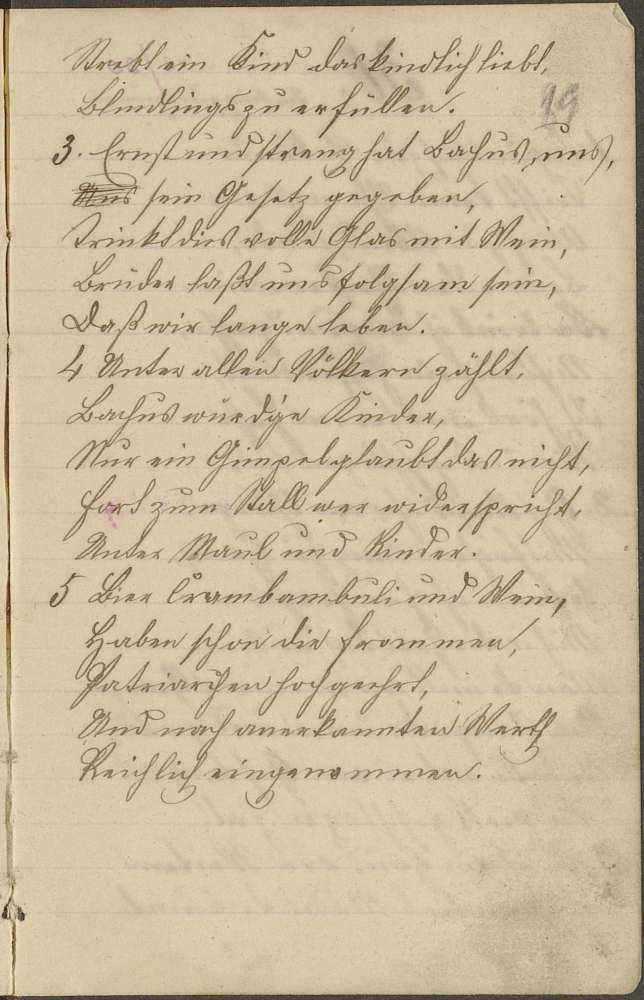 Strebt ein Kind das kindlich liebt,
Blindlings zu erfüllen.
19
3. Ernst und streng hat Bachus, uns,
Uns sein Gesetz gegeben,
Trinkt dies volle Glas mit Wein,
Brüder laßt uns folgsam sein,
Daß wir lange leben.
4 Unter allen Völkern zählt,
Bachus würdge Kinder,
Nur ein Gimpel glaubt das nicht,
Fort zum Stall wer widerspricht,
Unter Maul und Rinder.
5 Bier Crambambuli und Wein,
Haben schon die frommen,
Patriarchen hochgeehrt,
Und nach anerkannten Werth
Reichlich eingenommen.